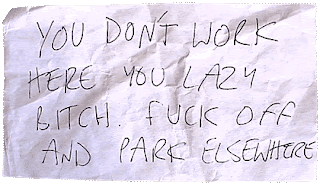 YOU DON'T WORK
HERE YOU LAZY
BITCH. FUCK OFF
AND PARK ELSEWHERE